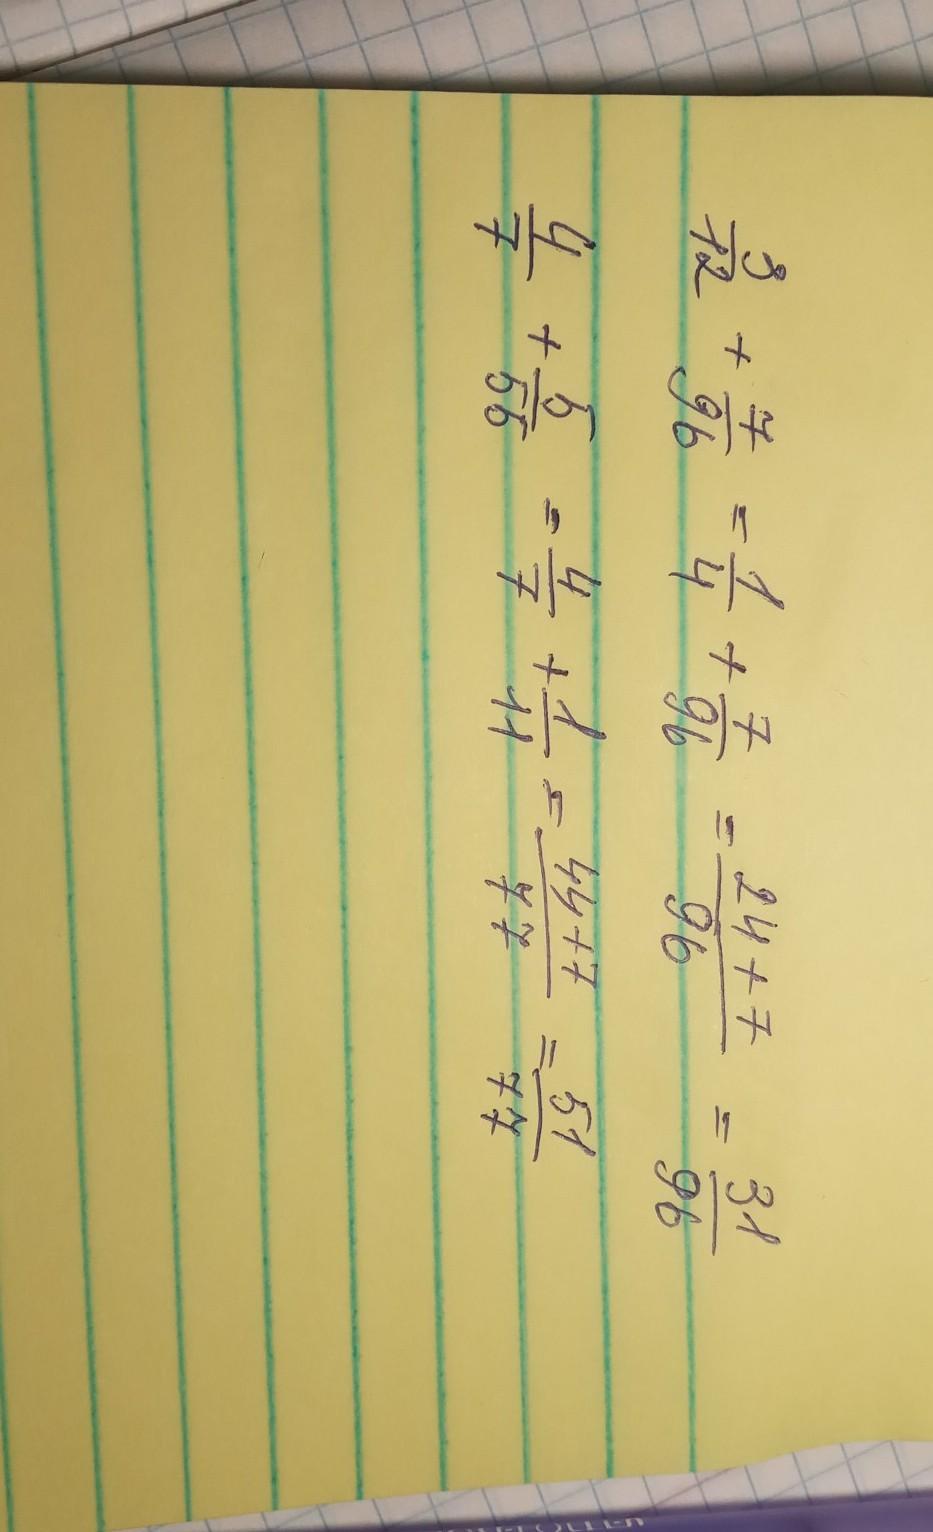 3/12 + 7/96 = 1/4 + 7/96 = (24+7)/96 = 31/96
4/7 + 5/55 = 4/7 + 1/11 = (44+7)/77 = 51/77